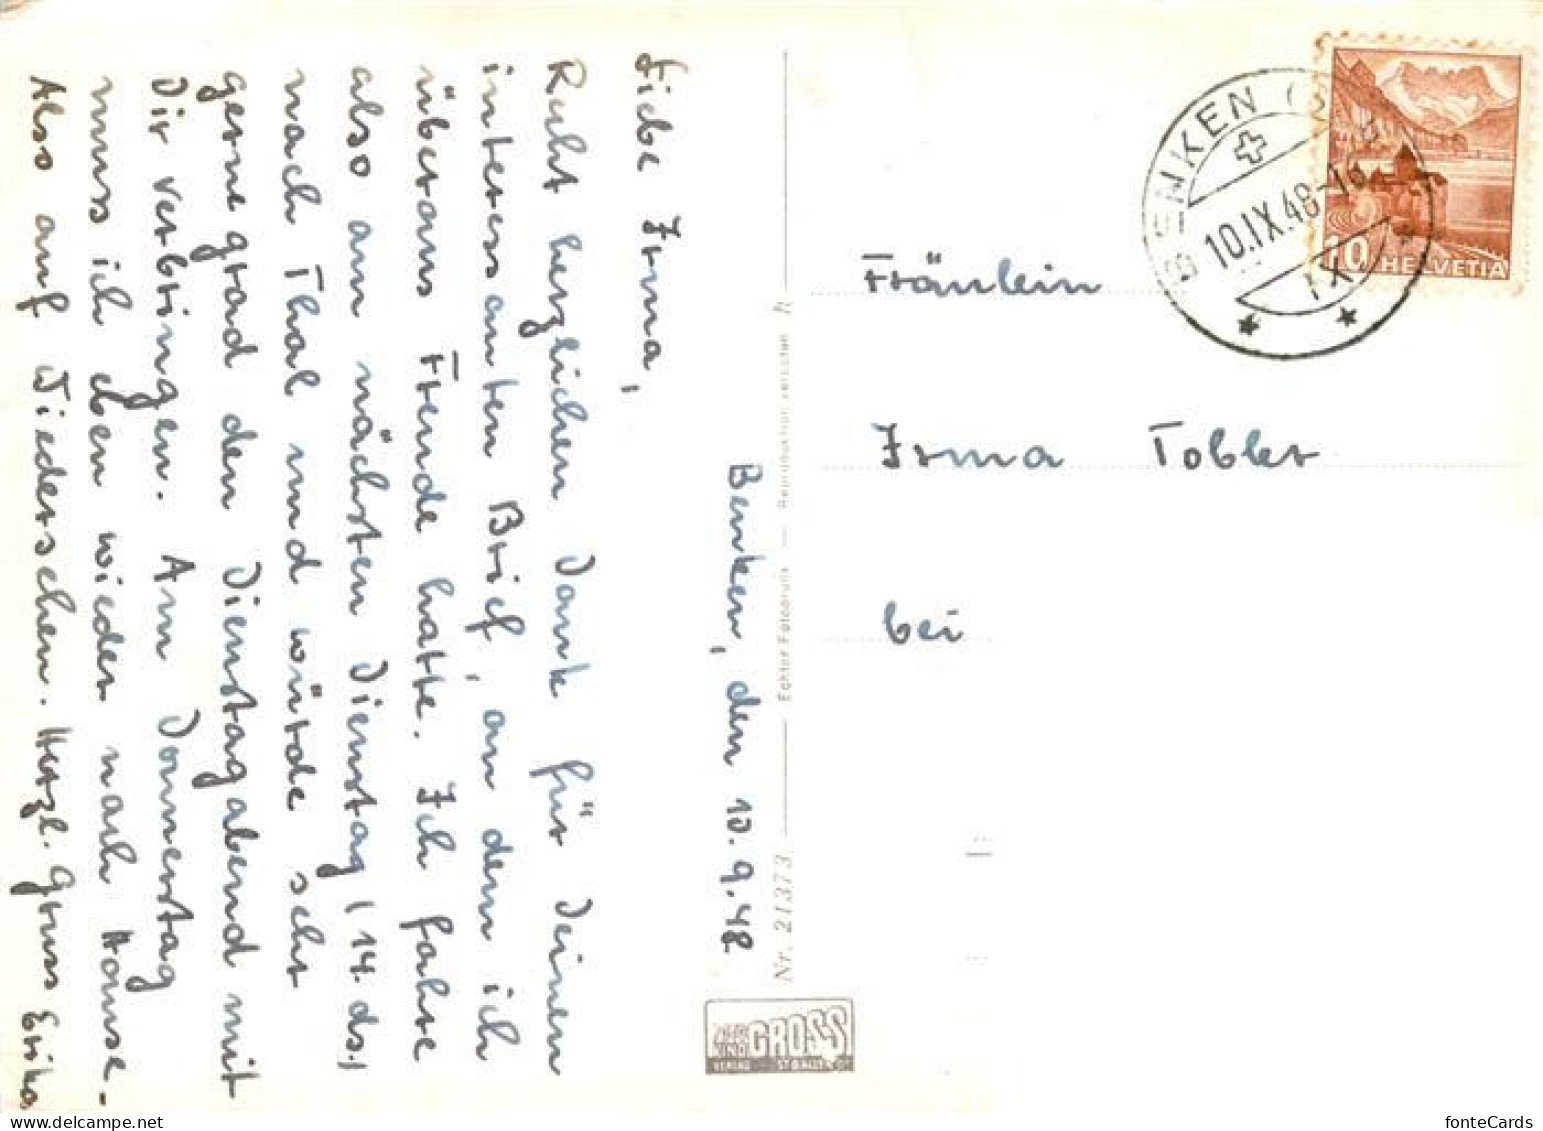 Benken, den 10.9.48
Liebe Irma,
Recht herzlichen Dank für Deinen
interessanten Brief, an dem ich
überaus Freude hatte. Ich fahre
also am nächsten Dienstag (14. ds.)
nach Thal und würde sehr
gerne grad den Dienstagabend mit
Dir verbringen. Am Donnerstag
muss ich eben wieder nach Hause.-
Also auf Wiedersehen. Herzl. Gruss Erika
Echter Fotodruck — Reproduktion verboten
Nr. 21373
GROSS
BENKEN
10.IX.48-18
IX
10 HELVETIA
Fräulein
Irma Tobler
bei
fonteCards